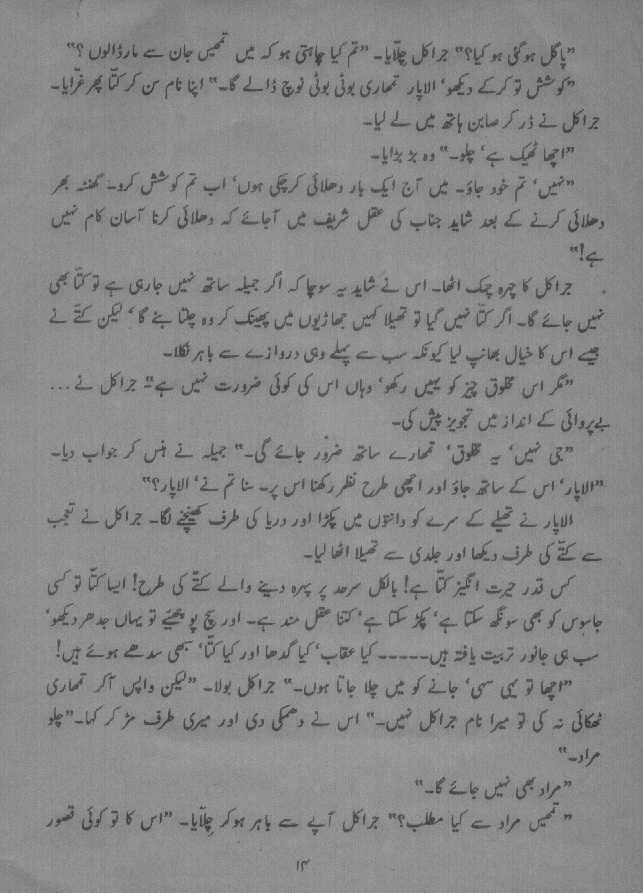 ”پاگل ہوگئی ہو کیا؟“ جراکل چلّایا۔ ”تم کیا چاہتی ہو کہ میں تمھیں جان سے مار ڈالوں؟“
”کوشش تو کرکے دیکھو‘ الاپار تمھاری بوٹی بوٹی نوچ ڈالے گا۔“ اپنا نام سن کر کتّا پھر غرّایا۔
جراکل نے ڈر کر صابن ہاتھ میں لے لیا۔
”اچھا ٹھیک ہے‘ چلو۔“ وہ بڑبڑایا۔
”نہیں‘ تم خود جاؤ۔ میں آج ایک بار دھلائی کرچکی ہوں‘ اب تم کوشش کرو۔ گھنٹہ بھر
دھلائی کرنے کے بعد شاید جناب کی عقل شریف میں آجائے کہ دھلائی کرنا آسان کام نہیں
ہے!“
جراکل کا چہرہ چمک اٹھا۔ اس نے شاید یہ سوچا کہ اگر جمیلہ ساتھ نہیں جارہی ہے تو کتّا بھی
نہیں جائے گا۔ اگر کتّا نہیں گیا تو تھیلا کہیں جھاڑیوں میں پھینک کر وہ چلتا بنے گا‘ لیکن کتّے نے
جیسے اس کا خیال بھانپ لیا کیونکہ سب سے پہلے وہی دروازے سے باہر نکلا۔
”مگر اس مخلوق چیز کو یہیں رکھو‘ وہاں اس کی کوئی ضرورت نہیں ہے“ جراکل نے ...
بےپروائی کے انداز میں تجویز پیش کی۔
”جی نہیں‘ یہ مخلوق‘ تمھارے ساتھ ضرور جائے گی۔“ جمیلہ نے ہنس کر جواب دیا۔
”الاپار‘ اس کے ساتھ جاؤ اور اچھی طرح نظر رکھنا اس پر۔ سنا تم نے‘ الاپار؟“
الاپار نے تھیلے کے سرے کو دانتوں میں پکڑا اور دریا کی طرف کھینچنے لگا۔ جراکل نے تعجب
سے کتّے کی طرف دیکھا اور جلدی سے تھیلا اٹھا لیا۔
کس قدر حیرت انگیز کتّا ہے! بالکل سرحد پر پہرہ دینے والے کتّے کی طرح! ایسا کتّا تو کسی
جاسوس کو بھی سونگھ سکتا ہے‘ پکڑ سکتا ہے‘ کتنا عقل مند ہے۔ اور سچ پوچھیئے تو یہاں جدھر دیکھو‘
سب ہی جانور تربیت یافتہ ہیں۔۔۔۔۔ کیا عقاب‘ کیا گدھا اور کیا کتّا‘ سبھی سدھے ہوئے ہیں!
”اچھا تو یہی سہی‘ جانے کو میں چلا جاتا ہوں۔“ جراکل بولا۔ ”لیکن واپس آکر تمھاری
ٹھکائی نہ کی تو میرا نام جراکل نہیں۔“ اس نے دھمکی دی اور میری طرف مڑ کر کہا۔ ”چلو
مراد۔“
”مراد بھی نہیں جائے گا۔“
”تمھیں مراد سے کیا مطلب؟“ جراکل آپے سے باہر ہوکر چلّایا۔ ”اس کا تو کوئی قصور
۱۴